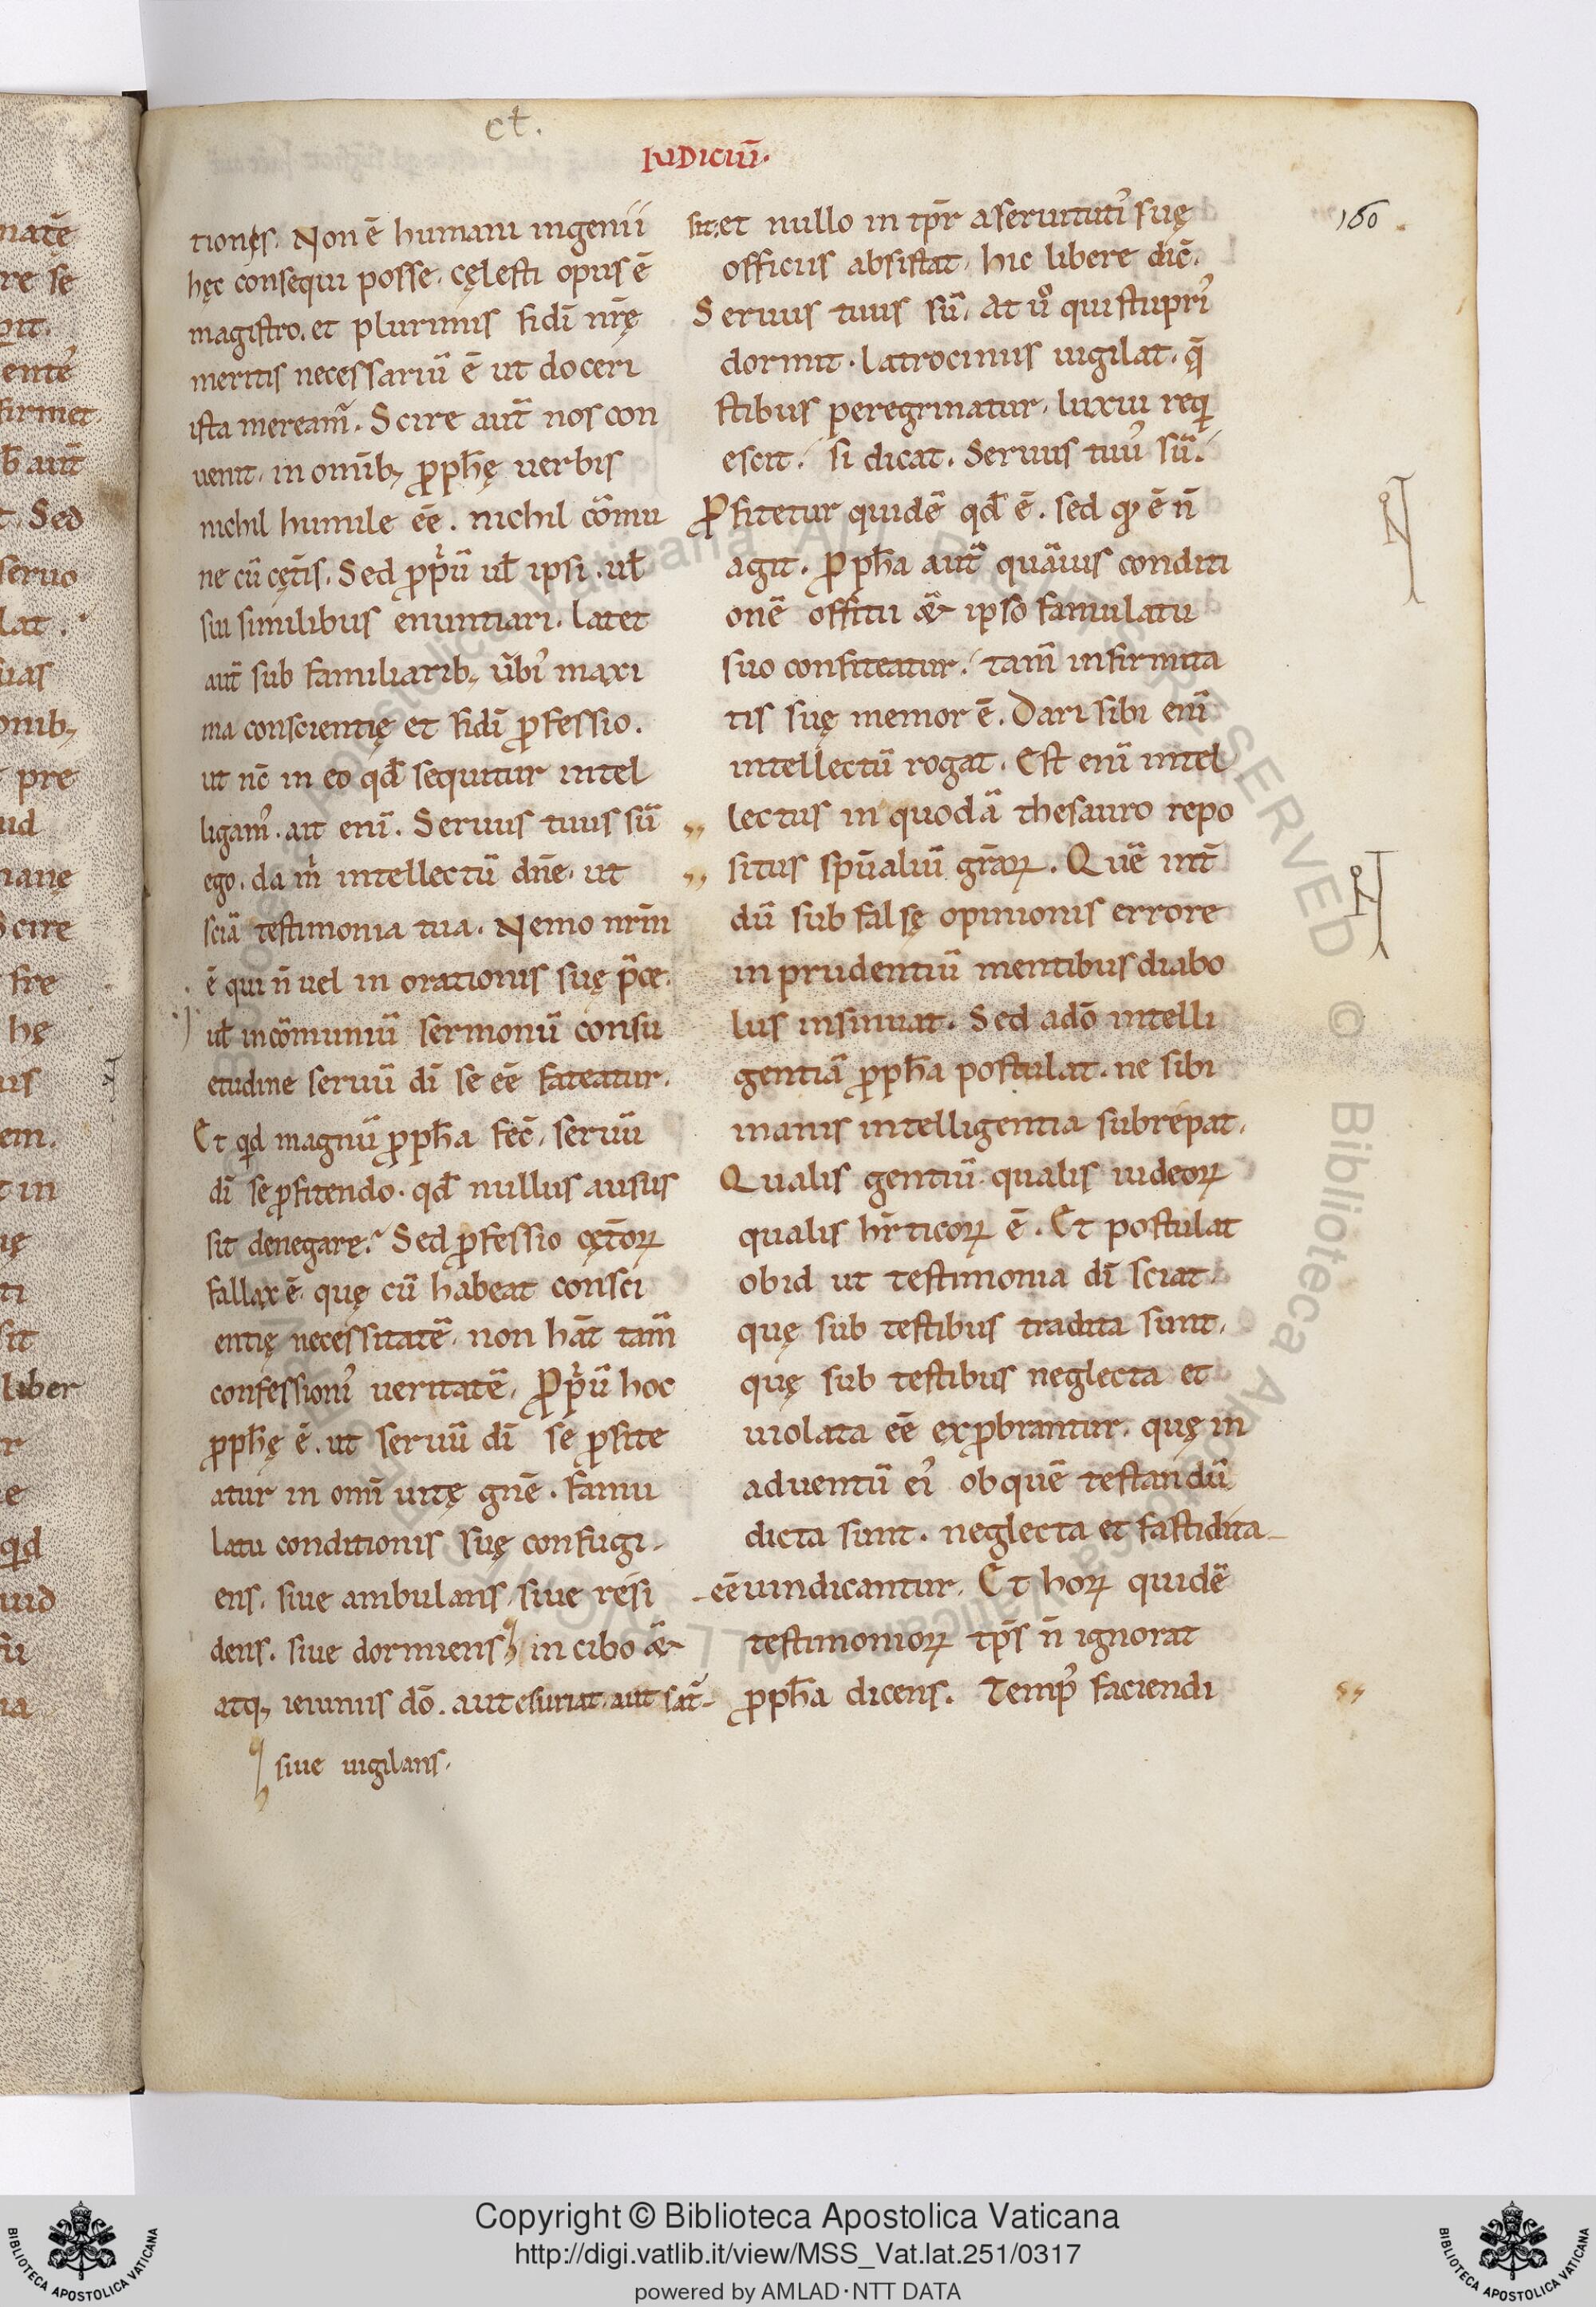 ct.
IUDICIŪ.
160
tionęs. Non ē humani ingenii
hęc consequi posse. cęlesti opus ē
magistro. et plurimis fidī nr̄ę
meritis necessariū ē ut doceri
ista meream̄. Scire aut̄ nos con
uenit. in omīb; ꝓph̄ę uerbis
nichil humile eē. nichil cōmu
ne cū cęt̄is. Sed ꝓp̀ū ul̄ ipsi. ul̄
sui similibus enuntiari. latet
aut̄ sub familiarib; ūbi᾽ maxi
ma conscientię et fidī ꝓfessio.
ut nc̄ in eo qd̄ sequitur intel
ligam᾽. ait enī. Seruus tuus sū
ego. da m̀ intellectū dn̄e. ut
sciā testimonia tua. Nemo nr̄m
ē qui n̄ uel in orationis suę p̄ce.
ul̄ in cōmuniū sermonū consu
etudine seruū dī se eē fateatur.
Et qd magnū ꝓph̄a fec̄. seruū
dī se ꝓfitendo. qd̄ nullus ausus
sit denegare. Sed ꝓfessio cęt̄oꝝ
fallax ē. quę cū habeat consci
entię necessitatē. non hāt tam̄
confessioni᾽ ueritatē. Ꝓp̀ū hoc
ꝓph̄ę ē. ut seruū dī se ꝓfite
atur in omī uitę gn̄e. famu
latu conditionis suę confugi
ens. siue ambulans siue resi
dens. siue dormiens in cibo &
atq; ieiunus dō. aut esuriat. aut sat̄
siue uigilans.
sit. et nullo in tp̄r a seruituti᾽ suę
officiis absistat. hic libere dic̄.
Seruus tuus sū. At ūo qui stupri᾽
dormit. latrociniis uigilat. q̄
stibus peregrinatur. luxui reqi
escit. si dicat. Seruus tuu᾽ sū.
Ꝓfitetur quidē qd̄ ē. sed qᵒ ē n̄
agit. Ꝓph̄a aut̄ quāuis conditi
onē offitii & ipso famulatu
suo confiteatur. tam̄ infirmita
tis suę memor ē. Dari sibi enī
intellectū rogat. Est enī intel
lectus in quodā thesauro repo
situs sp̄ualiū gr̄aꝝ. Quē int̄
dū sub falsę opinionis errore
inprudentiū mentibus diabo
lus insinuat. Sed adō intelli
gentiā ꝓph̄a postulat. ne sibi
inanis intelligentia subrepat.
Qualis gentiū qualis iudeoꝝ
qualis hr̄ticoꝝ ē. Et postulat
ob id ut testimonia dī sciat
quę sub testibus tradita sunt.
quę sub testibus neglecta et
uiolata eē exꝓbrantur. quę in
aduentū ei᾽ ob quē testandū
dicta sunt. neglecta et fastidita
eē uindicantur. Et hoꝝ quidē
testimonioꝝ tp̄s n̄ ignorat
ꝓph̄a dicens. Temp᾽ faciendi
Copyright © Biblioteca Apostolica Vaticana
http://digi.vatlib.it/view/MSS_Vat.lat.251/0317
powered by AMLAD·NTT DATA